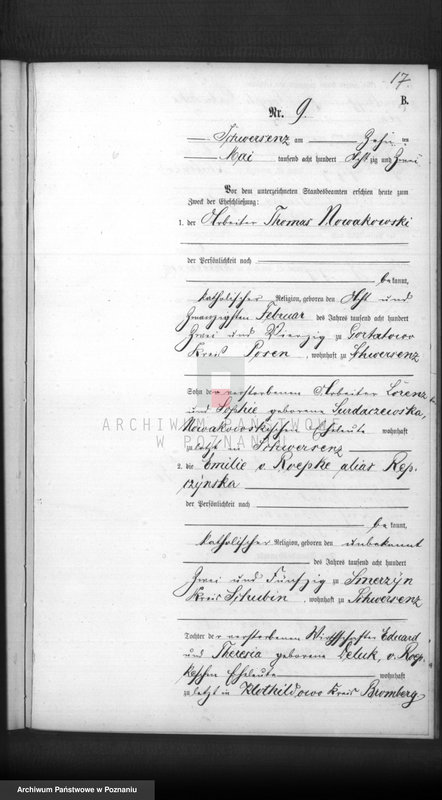 17.
B.
Nr. 9.
Schwersenz am Zehn ten
Mai tausend acht hundert Acht zig und Zwei
Vor dem unterzeichneten Standesbeamten erschien heute zum
Zweck der Eheschließung:
1. der Arbeiter Thomas Nowakowski
der Persönlichkeit nach
be kannt,
katholischer Religion, geboren den Acht und
Zwanzigsten Februar des Jahres tausend acht hundert
Zwei und Vierzig zu Gortatowo
Kreis Posen, wohnhaft zu Schwersenz
Sohn der verstorbenen Arbeiter Lorenz
und Sophie geborene Surdaczewska,
Nowakowskischen Eheleute wohnhaft
zu letzt in Schwersenz
2. die Emilie v. Roepke alias Rep-
czynska
der Persönlichkeit nach
be kannt,
katholischer Religion, geboren den unbekannt
des Jahres tausend acht hundert
Zwei und Fünfzig zu Smerzyn
Kreis Schubin, wohnhaft zu Schwersenz
Tochter der verstorbenen Wirthschafter Eduard
und Theresia geborene v. Roep-
keschen Eheleute wohnhaft
zu letzt in Klothildowo Kreis Bromberg
ARCHIWUM PAŃSTWOWE
W POZNANIU
Archiwum Państwowe w Poznaniu